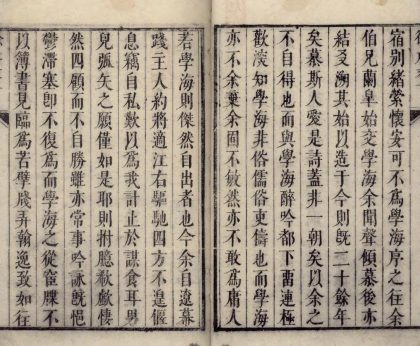 宿別緒縈懷安可不爲學海序之往余
伯兄蘭皐始交學海余聞聲傾慕後亦
結 其始以造于今則旣二十餘年
矣慕斯人愛是詩蓋非一朝矣以余之
不自得也而與學海醉吟都下雷連極
歡淡知學海非俗儒俗吏儔也而學海
亦不余棄余固不敏然亦不敢爲庸人
若學海則傑然自出者也今余自遼幕
踐王人約將適江右驅馳四方不遑偃
息竊自私歎以爲我計止於謀食耳男
兒弧矢之願僅如是耶則拊膺欷歔棲
然四顧而不自勝雖亦常事吟詠旣悒
鬱滯塞卽不復爲而學海之從 牒不
以簿書見臨爲苦擘牋弄翰逸致如往